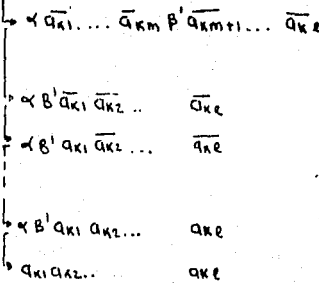 α a̅ₖ₁ .... a̅ₖₘ β' a̅ₖₘ₊₁ ... a̅ₖₑ
α β' a̅ₖ₁ a̅ₖ₂ .. a̅ₖₑ
α β' aₖ₁ a̅ₖ₂ ... a̅ₖₑ
α β' aₖ₁ aₖ₂ ... aₖₑ
aₖ₁ aₖ₂ .. aₖₑ